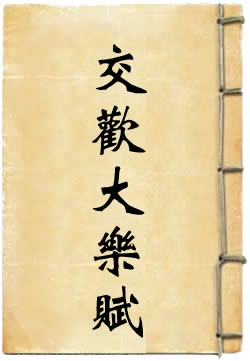 交歡大樂賦